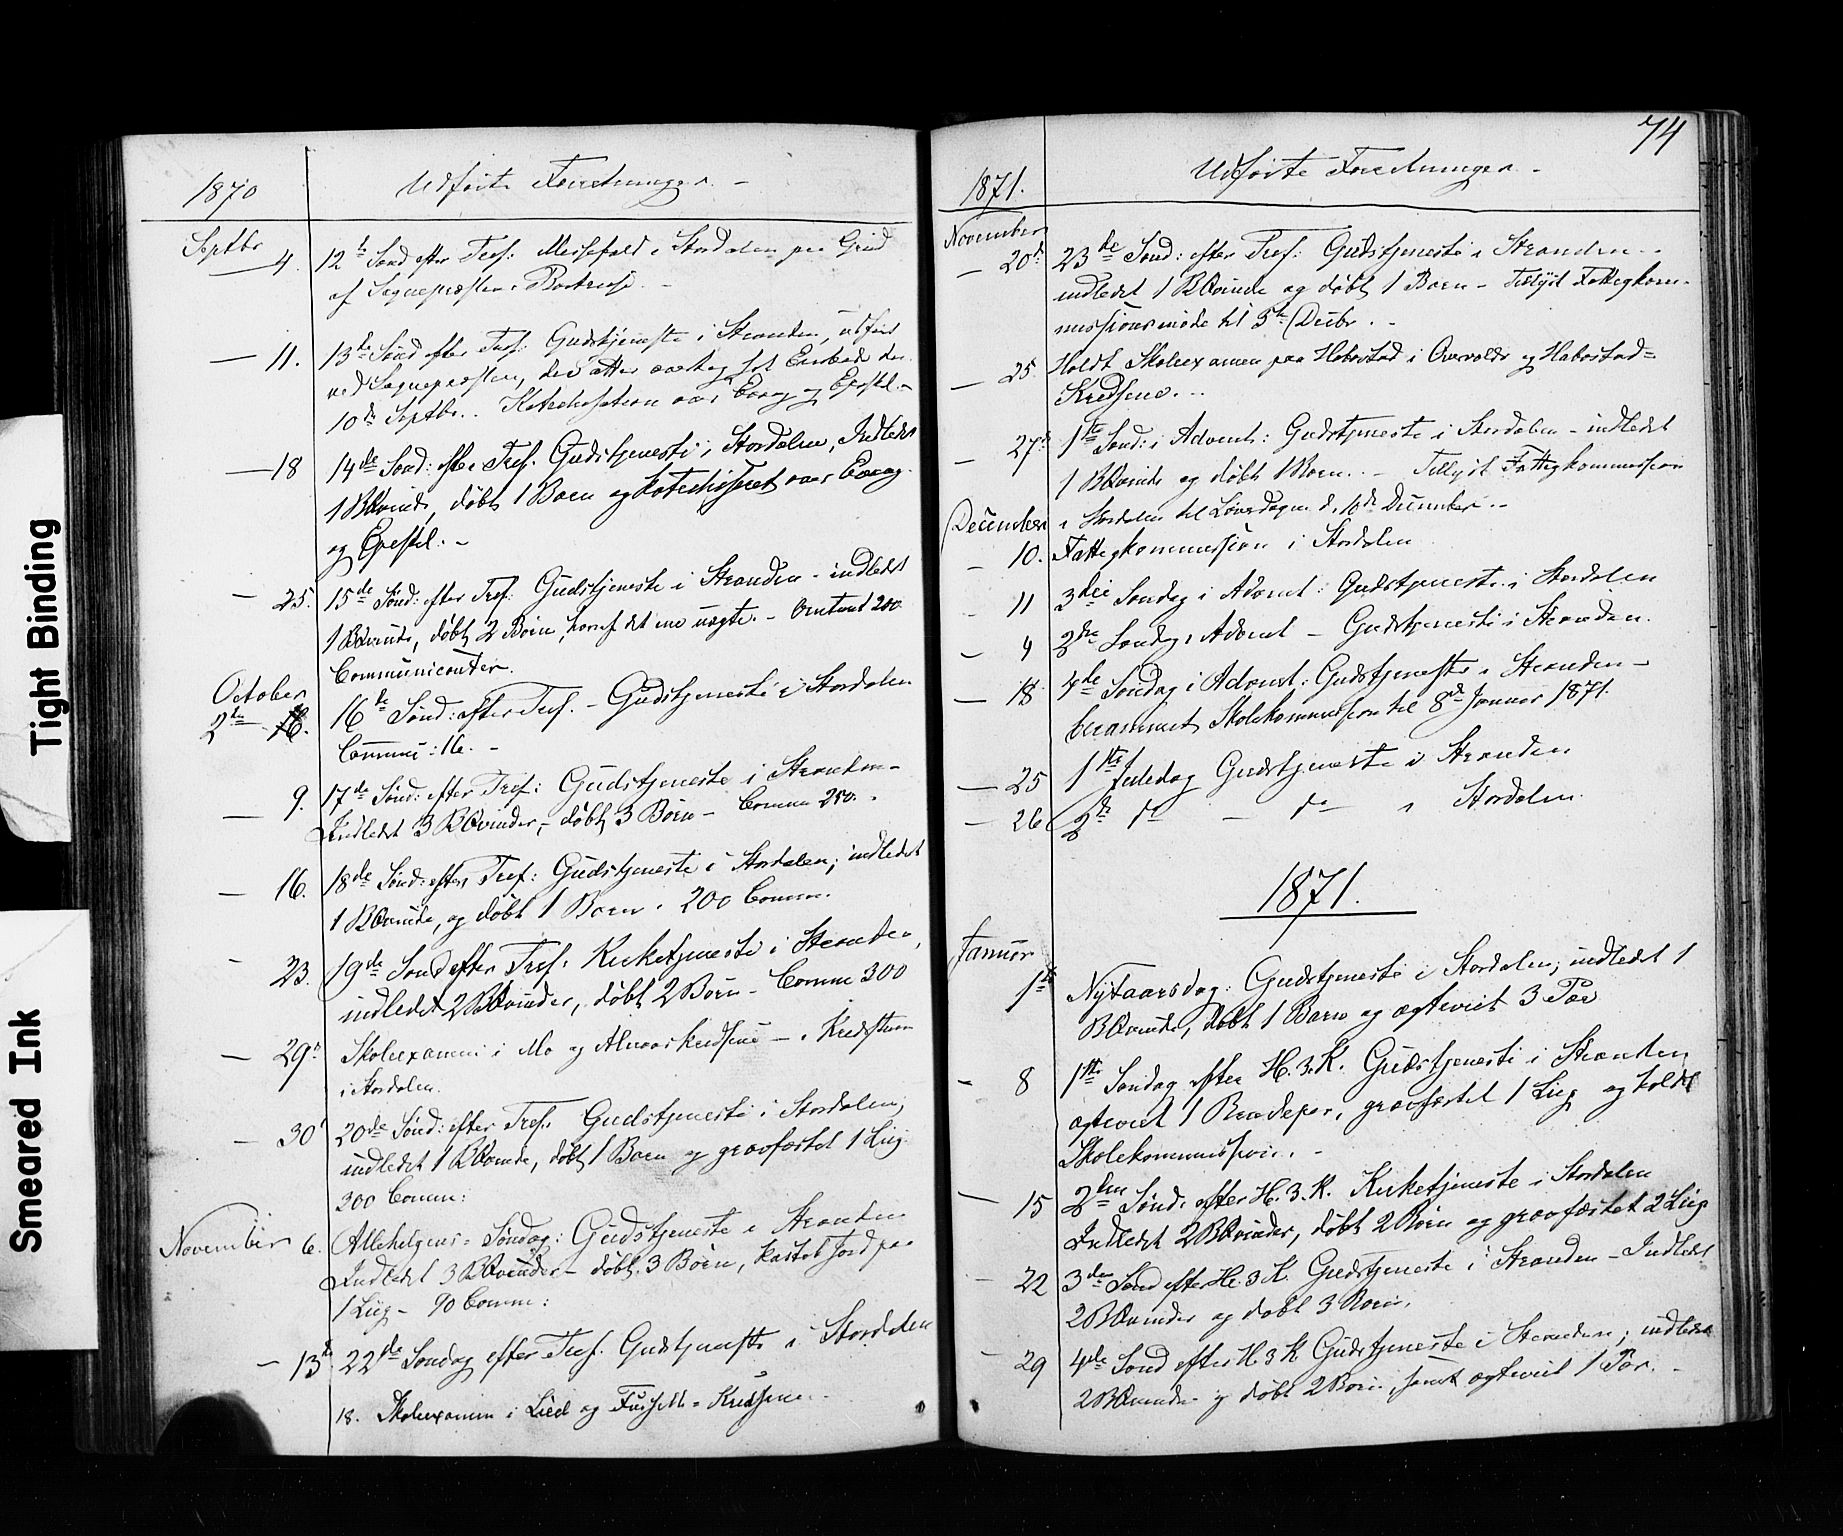 Tight Binding
Smeared Ink
1870
Udførte Forretninger. -
Septbr
— 4. 12te Sønd efter Tref: Messefald i Stordalen paa Grund
af Sognepræstens
— 11. 13de Sønd efter Tref: Gudstjeneste i Stranden, udført
ved Sognepræsten, der atter Embede den
10de Septbr. Katechisation over Evang og Epistel. -
— 18 14de Sønd: efter Tref. Gudstjeneste i Stordalen, Indledet
1 BKvinde, døbt 1 Barn og Katechiseret over Evang.
og Epistel. -
— 25. 15de Sønd: efter Tref: Gudstjeneste i Stranden - indledet
1 BKvinde, døbt 2 Børn, hvoraf det ene uægte. - Omtrent 200
Communicanter.
October
2den 16te Sønd: efter Tref. - Gudstjeneste i Stordalen
Commu: 16. -
— 9. 17de Sønd: efter Tref: Gudstjeneste i Stranden -
Indledet 3 BKvinder, - døbt 3 Børn - Commu 250. -
— 16. 18de Sønd: efter Tref: Gudstjeneste i Stordalen; indledet
1 BKvinde, og døbt 1 Barn. 200 Commu.
- 23. 19de Sønd efter Tref. Kirketjeneste i Stranden,
indledet 2 BKvinder, døbt 2 Børn - Commu 300
— 29. Skoleexamen i Mo og Almaaskredsene - i Kredsstuen
i Stordalen.
— 30 20de Sønd: efter Tref. Gudstjeneste i Stordalen;
indledet 1 BKvinde, døbt 1 Barn og gravfæstet 1 Liig.
200 Commu:
November 6. Allehelgens-Søndag: Gudstjeneste i Stranden
Indledet 3 BKvinder - døbt 3 Børn, kastet Jord paa
1 Liig - 90 Commu:
— 13de 22de Søndag efter Tref. Gudstjeneste i Stordalen
18. Skoleexamen i Lied og Kredsene. -
74
1871.
Udførte Forretninger. -
November
— 20de 23de Sønd: efter Tref: Gudstjeneste i Stranden. -
indledet 1 BKvinde og døbt 1 Barn - Tillyst Fattigkom-
missionsmøde til 5te Decbr. -
— 25. Holdt Skoleexamen paa Habostad i Overvolds og Habostad-
Kredsene. -
— 27de 1ste Sønd: i Advent: Gudstjeneste i Stordalen - indledet
1 BKvinde og døbt 1 Barn. - Tillyst Fattigkommission
December i Stordalen til Løverdagen d. 10de December. -
— 10. Fattigkommission i Stordalen
— 11 3die Søndag i Advent: Gudstjeneste i Stordalen
— 4 2den Søndag i Advent - Gudstjeneste i Stranden.
— 18 4de Søndag i Advent: Gudstjeneste i Stranden -
berammet Skolekommission til 8de Januar 1871.
— 25 1ste Juledag Gudstjeneste i Stranden
— 26 2de do — do i Stordalen
1871.
Januar
1ste Nytaarsdag: Gudstjeneste i Stordalen; indledet 1
BKvinde, døbt 1 Barn og ægteviet 3 Par
— 8 1ste Søndag efter H. 3. K. Gudstjeneste i Stranden
ægteviet 1 Brudepar, gravfæstet 1 Liig og holdt
Skolekommission. -
— 15 2den Sønd: efter H. 3. K. Kirketjeneste i Stordalen
Indledet 2 BKvinder, døbt 2 Børn og gravfæstet 2 Liig
— 22 3die Sønd efter He. 3 K. Gudstjeneste i Stranden - Indledet
2 BKvinder og døbt 3 Børn.
— 29 4de Sønd efter H 3 K Gudstjeneste i Stranden; indledet
2 BKvinder og døbt 2 Børn, samt ægteviet 1 Par. -